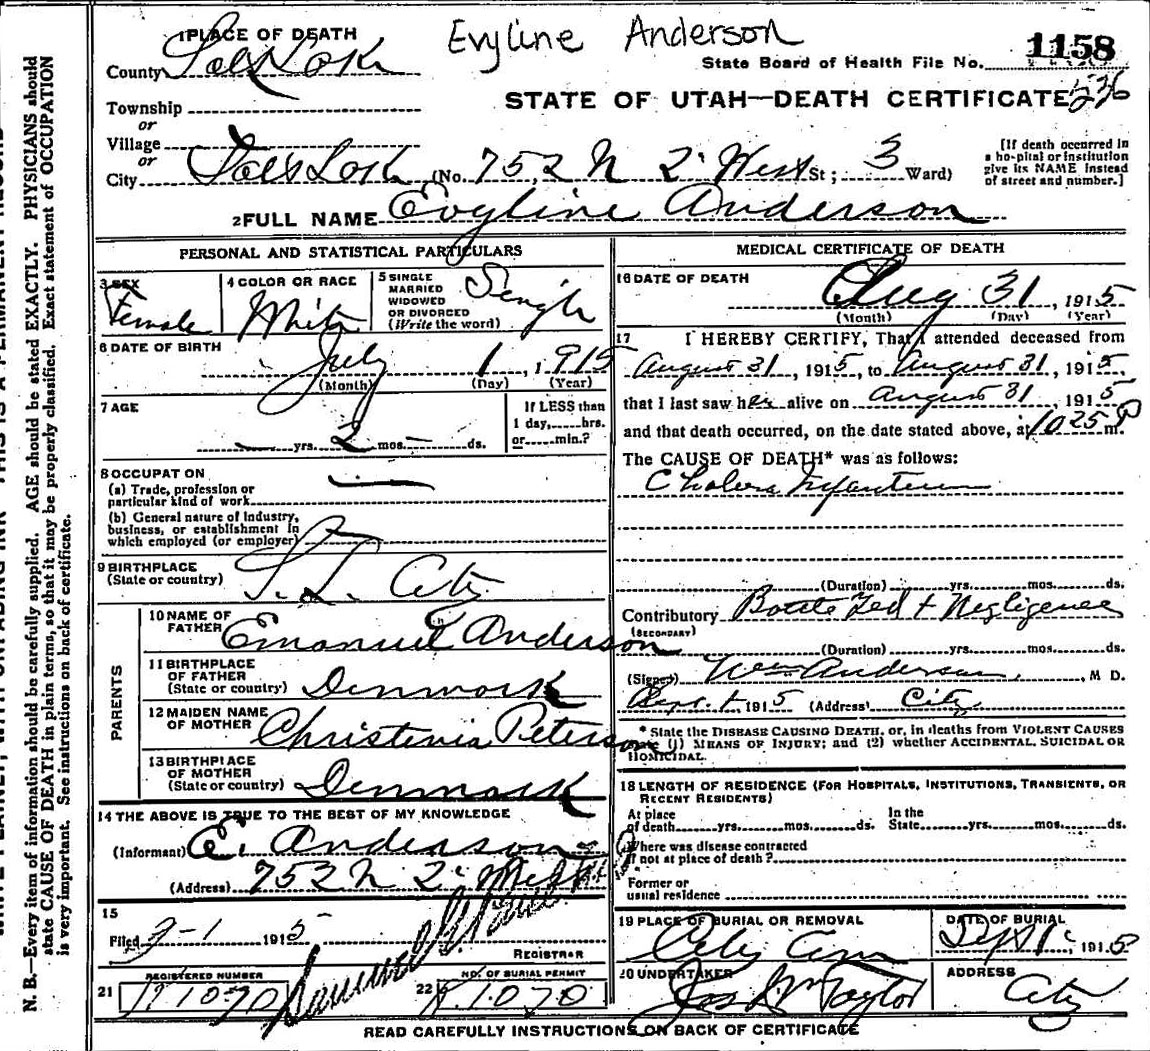 Evyline Anderson
1158
State Board of Health File No.
536
STATE OF UTAH—DEATH CERTIFICATE
1 PLACE OF DEATH
County Salt Lake
Township
or
Village
or
City Salt Lake (No. 752 N 2' West St; 3 Ward)
[If death occurred in
a hospital or institution
give its NAME instead
of street and number.]
2 FULL NAME Evyline Anderson
PERSONAL AND STATISTICAL PARTICULARS
3 SEX
Female
4 COLOR OR RACE
White
5 SINGLE
MARRIED
WIDOWED
OR DIVORCED
(Write the word)
Single
6 DATE OF BIRTH
July 1, 1915
(Month) (Day) (Year)
7 AGE
— yrs. 2 mos. — ds.
If LESS than
1 day, hrs.
or min.?
8 OCCUPATION
(a) Trade, profession or
particular kind of work
(b) General nature of industry,
business, or establishment in
which employed (or employer)
9 BIRTHPLACE
(State or country)
S. L. City
PARENTS
10 NAME OF
FATHER
Emanuel Anderson
11 BIRTHPLACE
OF FATHER
(State or country)
Denmark
12 MAIDEN NAME
OF MOTHER
Christinia Peterson
13 BIRTHPLACE
OF MOTHER
(State or country)
Denmark
14 THE ABOVE IS TRUE TO THE BEST OF MY KNOWLEDGE
(Informant) E. Anderson
(Address) 752 N 2' West
15
Filed 9-1 1915
REGISTRAR
REGISTERED NUMBER
21 1070
NO. OF BURIAL PERMIT
22 1070
MEDICAL CERTIFICATE OF DEATH
16 DATE OF DEATH
Aug 31, 1915
(Month) (Day) (Year)
17 I HEREBY CERTIFY, That I attended deceased from
August 31, 1915, to August 31, 1915,
that I last saw her alive on August 31 1915
and that death occurred, on the date stated above, at 1025 P m.
The CAUSE OF DEATH* was as follows:
Cholera Infantum
(Duration) yrs. mos. ds.
Contributory Bottle Fed + Negligence
(SECONDARY)
(Duration) yrs. mos. ds.
(Signed) Wm Anderson, M D.
Sept. 1, 1915 (Address) City
* State the DISEASE CAUSING DEATH, or, in deaths from VIOLENT CAUSES
state (1) MEANS OF INJURY; and (2) whether ACCIDENTAL, SUICIDAL OR
HOMICIDAL.
18 LENGTH OF RESIDENCE (FOR HOSPITALS, INSTITUTIONS, TRANSIENTS, OR
RECENT RESIDENTS)
At place
of death yrs. mos. ds.
In the
State yrs. mos. ds.
Where was disease contracted
if not at place of death?
Former or
usual residence
19 PLACE OF BURIAL OR REMOVAL
City Cem
DATE OF BURIAL
Sept 1, 1915
20 UNDERTAKER
Jos Wm Taylor
ADDRESS
City
READ CAREFULLY INSTRUCTIONS ON BACK OF CERTIFICATE
N. B.—Every item of information should be carefully supplied. AGE should be stated EXACTLY. PHYSICIANS should
state CAUSE OF DEATH in plain terms, so that it may be properly classified. Exact statement of OCCUPATION
is very important. See instructions on back of certificate.